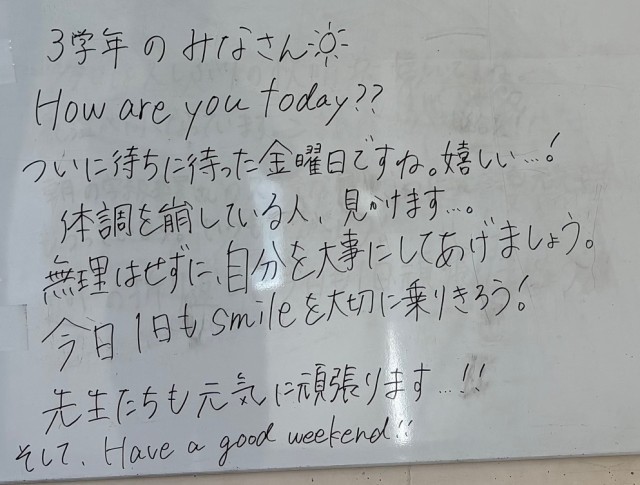 3学年のみなさん☼
How are you today??
ついに待ちに待った金曜日ですね。嬉しい...!
体調を崩している人、見かけます...。
無理はせずに、自分を大事にしてあげましょう。
今日1日もsmileを大切に乗りきろう!
先生たちも元気に頑張ります...!!
そして、Have a good weekend!!